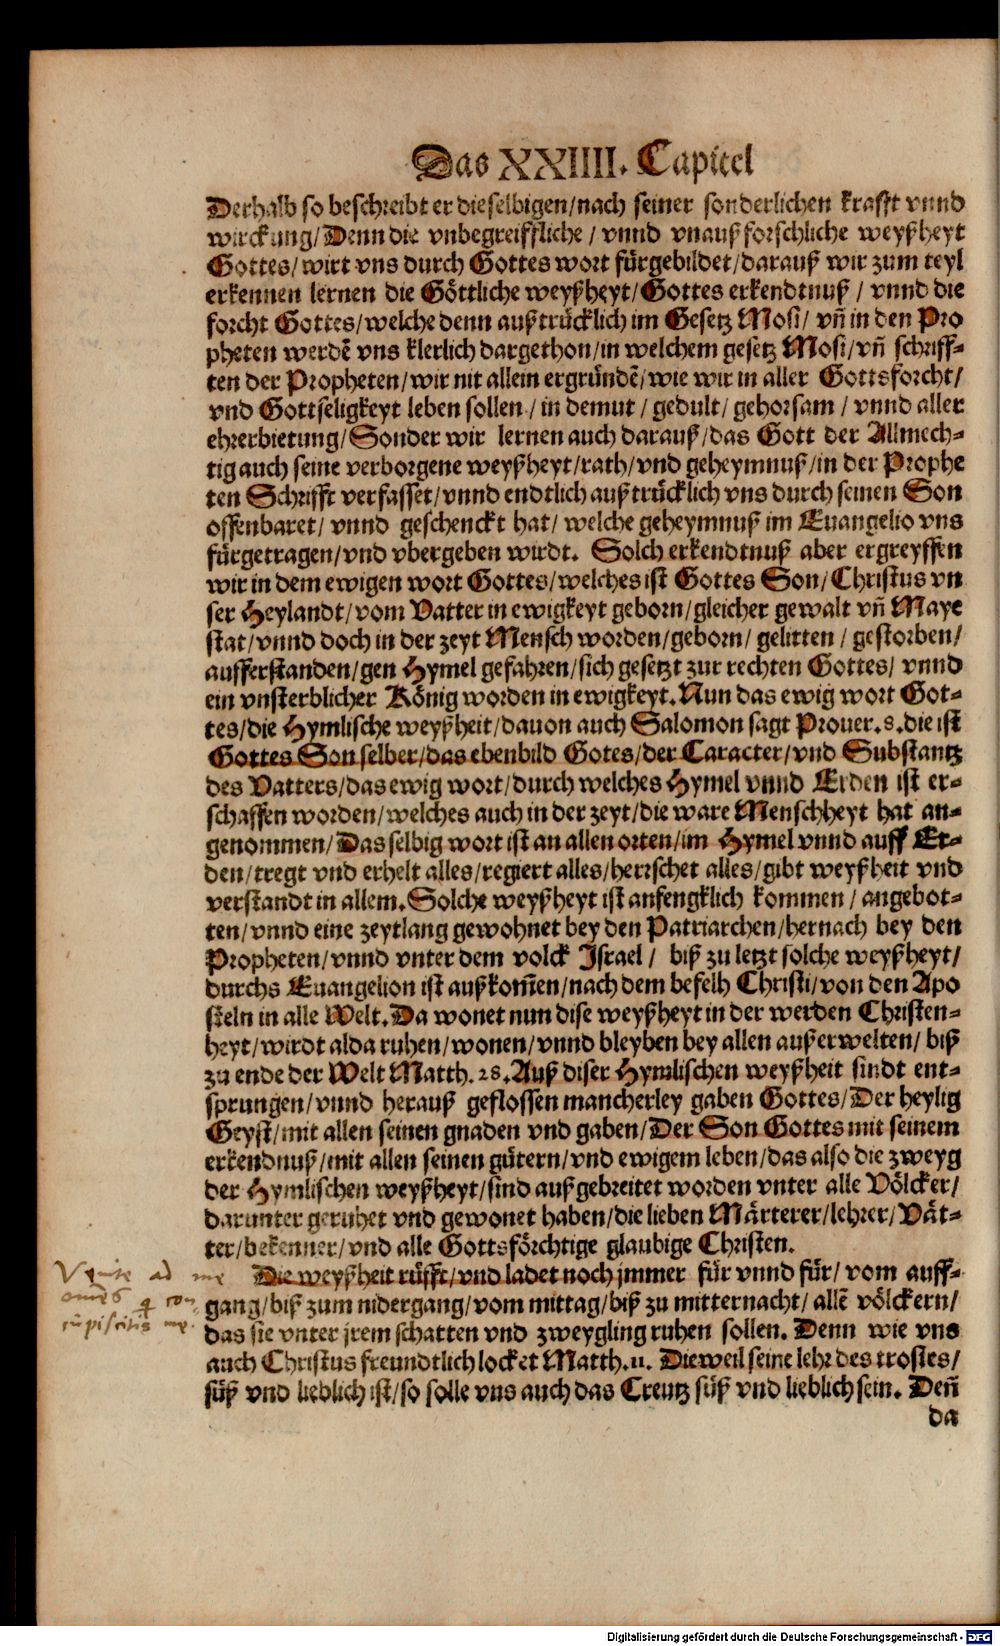 Das XXIIII. Capitel
Derhalb so beschreibt er dieselbigen/nach seiner sonderlichen krafft vnnd
wirckung/Denn die vnbegreiffliche / vnnd vnaußforschliche weyßheyt
Gottes/wirt vns durch Gottes wort fürgebildet/darauß wir zum teyl
erkennen lernen die Göttliche weyßheyt/Gottes erkendtnuß / vnnd die
forcht Gottes/welche denn außtrücklich im Gesetz Mosi/ vñ in den Pro
pheten werdẽ vns klerlich dargethon/in welchem gesetz Mosi/vñ schriff-
ten der Propheten/wir nit allein ergründẽ/wie wir in aller Gottsforcht/
vnd Gottseligkeyt leben sollen/in demut / gedult/gehorsam / vnnd aller
ehrerbietung/Sonder wir lernen auch darauß/das Gott der Allmech-
tig auch seine verborgene weyßheyt/rath/vnd geheymnuß/in der Prophe
ten Schrifft verfasset/vnnd endtlich außtrücklich vns durch seinen Son
offenbaret/ vnnd geschenckt hat/ welche geheymnuß im Euangelio vns
fürgetragen/vnd vbergeben wirdt. Solch erkendtnuß aber ergreyffen
wir in dem ewigen wort Gottes/welches ist Gottes Son/Christus vn
ser Heylandt/vom Vatter in ewigkeyt geborn/gleicher gewalt vñ Maye
stat/vnnd doch in der zeyt Mensch worden/geborn/ gelitten / gestorben/
aufferstanden/gen Hymel gefahren/sich gesetzt zur rechten Gottes/ vnnd
ein vnsterblicher König worden in ewigkeyt. Nun das ewig wort Got-
tes/die Hymlische weyßheit/dauon auch Salomon sagt Prouer.8.die ist
Gottes Son selber/das ebenbild Gotes/der Caracter/vnd Substantz
des Vatters/das ewig wort/durch welches Hymel vnnd Erden ist er-
schaffen worden/welches auch in der zeyt/die ware Menschheyt hat an-
genommen/Dasselbig wort ist an allen orten/im Hymel vnnd auff Er-
den/tregt vnd erhelt alles/regiert alles/herrschet alles/gibt weyßheit vnd
verstandt in allem.Solche weyßheyt ist anfengklich kommen / angebot-
ten/vnnd eine zeytlang gewohnet bey den Patriarchen/hernach bey den
Propheten/vnnd vnter dem volck Israel / biß zu letzt solche weyßheyt/
durchs Euangelion ist außkom̃en/nach dem befelh Christi/von den Apo
steln in alle Welt.Da wonet nun dise weyßheyt in der werden Christen-
heyt/wirdt alda ruhen/wonen/vnnd bleyben bey allen außerwelten/ biß
zu ende der Welt Matth.28.Auß diser Hymlischen weyßheit sindt ent-
sprungen/vnnd herauß geflossen mancherley gaben Gottes/Der heylig
Geyst/mit allen seinen gnaden vnd gaben/Der Son Gottes mit seinem
erkendnuß/mit allen seinen gütern/vnd ewigem leben/das also die zweyg
der Hymlischen weyßheyt/sind außgebreitet worden vnter alle Völcker/
darunter geruhet vnd gewonet haben/die lieben Märterer/lehrer/Vät-
ter/bekenner/vnd alle Gottsförchtige glaubige Christen.
Venite ad me
omēs q̄ con
cūpiscitis me.
Die weyßheit rüfft/vnd ladet noch jmmer für vnnd für/ vom auff-
gang/biß zum nidergang/vom mittag/biß zu mitternacht/ allẽ völckern/
das sie vnter jrem schatten vnd zweygling ruhen sollen. Denn wie vns
auch Christus freundtlich locket Matth.11. Dieweil seine lehr des trostes/
süß vnd lieblich ist/so solle vns auch das Creutz süß vnd lieblich sein. Deñ
da
Digitalisierung gefördert durch die Deutsche Forschungsgemeinschaft - DFG